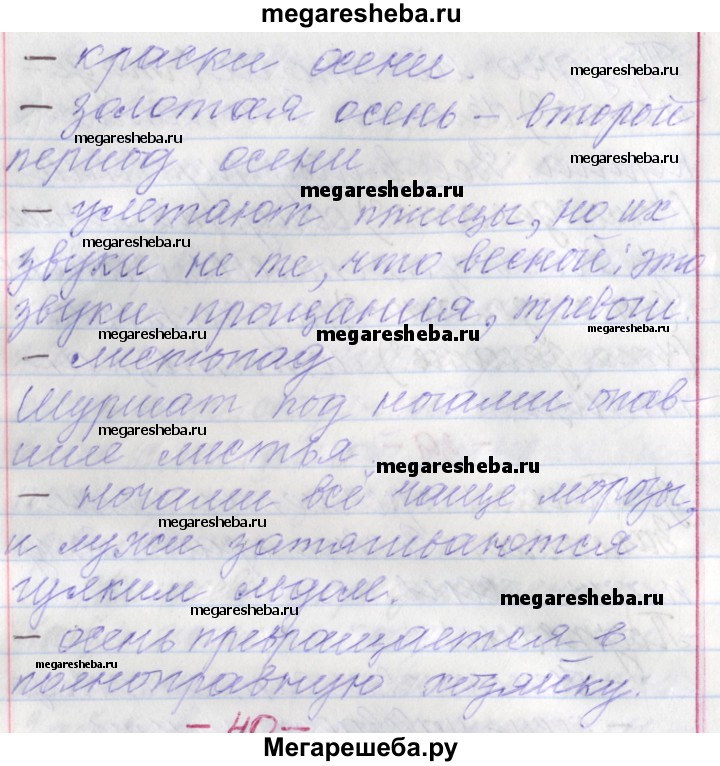 megaresheba.ru
– краски осени.
megaresheba.ru
– золотая осень – второй
megaresheba.ru
период осени
megaresheba.ru
megaresheba.ru
– улетают птицы, но их
megaresheba.ru
звуки не те, что весной: это
звуки прощания, тревоги.
megaresheba.ru
megaresheba.ru
megaresheba.ru
– листопад
Шуршат под ногами опав-
megaresheba.ru
шие листья
megaresheba.ru
– ночами всё чаще морозы,
megaresheba.ru
и лужи затягиваются
гулким льдом.
megaresheba.ru
megaresheba.ru
– осень превращается в
megaresheba.ru
полноправную хозяйку.
– 40 –
Мегарешеба.ру